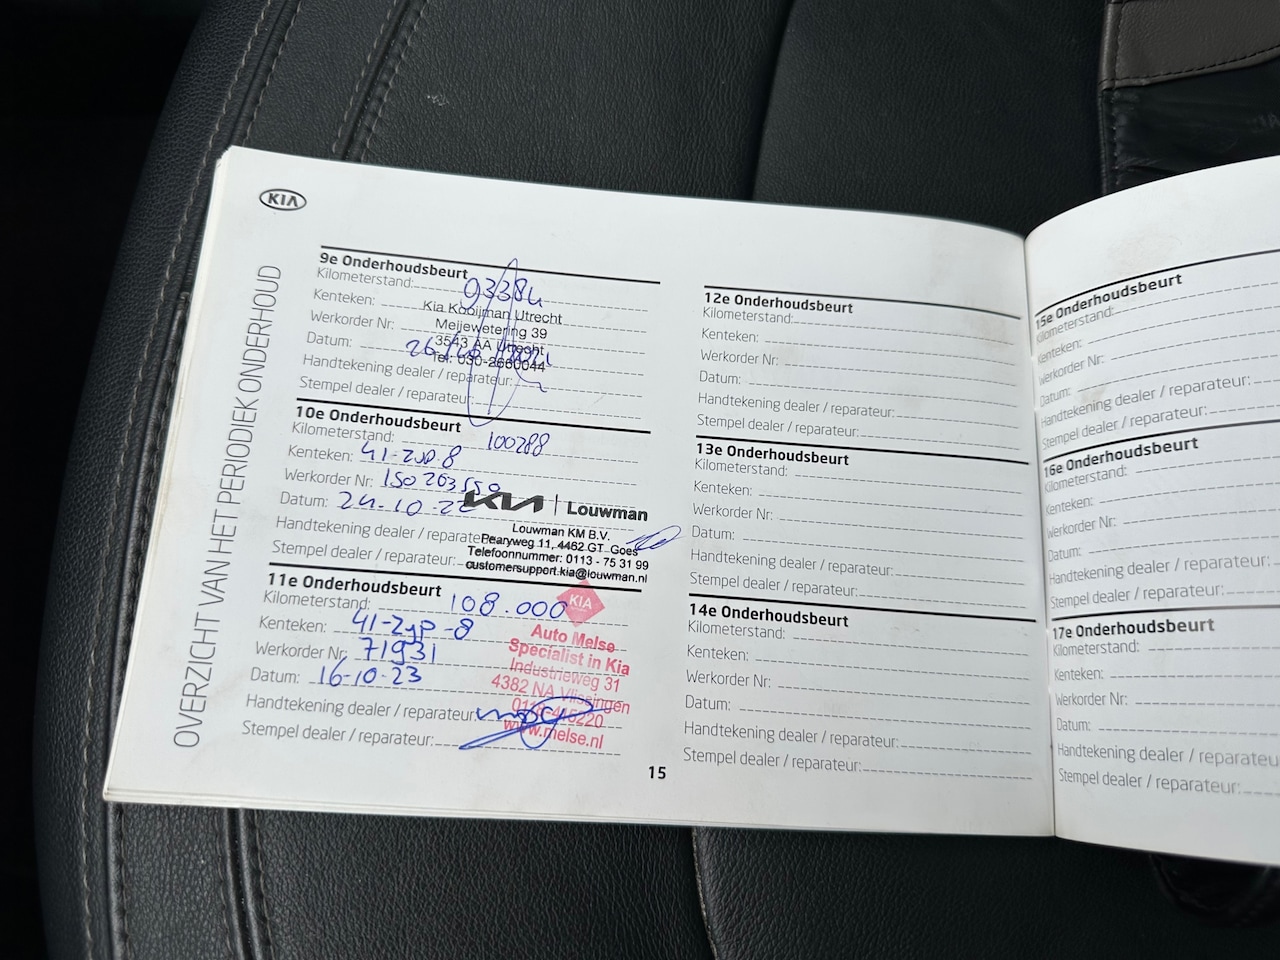 KIA
OVERZICHT VAN HET PERIODIEK ONDERHOUD
9e Onderhoudsbeurt
Kilometerstand: 93384
Kenteken:
Kia Kooijman Utrecht
Meijewetering 39
Werkorder Nr:
3543 AA Utrecht
Datum:
Tel: 030-2660044
Handtekening dealer / reparateur:
Stempel dealer / reparateur:
10e Onderhoudsbeurt
Kilometerstand: 100288
Kenteken: 41-ZJP 8
Werkorder Nr: 150 263550
Datum: 24-10-22
KIA | Louwman
Louwman KM B.V.
Pearyweg 11, 4462 GT Goes
Telefoonnummer: 0113 - 75 31 99
customersupport.kia@louwman.nl
Handtekening dealer / reparateur:
Stempel dealer / reparateur:
11e Onderhoudsbeurt
Kilometerstand: 108.000
Kenteken: 41-ZJP-8
Werkorder Nr: 71931
Datum: 16-10-23
KIA
Auto Melse
Specialist in Kia
Industrieweg 31
4382 NA Vlissingen
www.melse.nl
Handtekening dealer / reparateur:
Stempel dealer / reparateur:
15
12e Onderhoudsbeurt
Kilometerstand:
Kenteken:
Werkorder Nr:
Datum:
Handtekening dealer / reparateur:
Stempel dealer / reparateur:
13e Onderhoudsbeurt
Kilometerstand:
Kenteken:
Werkorder Nr:
Datum:
Handtekening dealer / reparateur:
Stempel dealer / reparateur:
14e Onderhoudsbeurt
Kilometerstand:
Kenteken:
Werkorder Nr:
Datum:
Handtekening dealer / reparateur:
Stempel dealer / reparateur:
15e Onderhoudsbeurt
Kilometerstand:
Kenteken:
Werkorder Nr:
Datum:
Handtekening dealer / reparateur:
Stempel dealer / reparateur:
16e Onderhoudsbeurt
Kilometerstand:
Kenteken:
Werkorder Nr:
Datum:
Handtekening dealer / reparateur:
Stempel dealer / reparateur:
17e Onderhoudsbeurt
Kilometerstand:
Kenteken:
Werkorder Nr:
Datum:
Handtekening dealer / reparateu
Stempel dealer / reparateur: